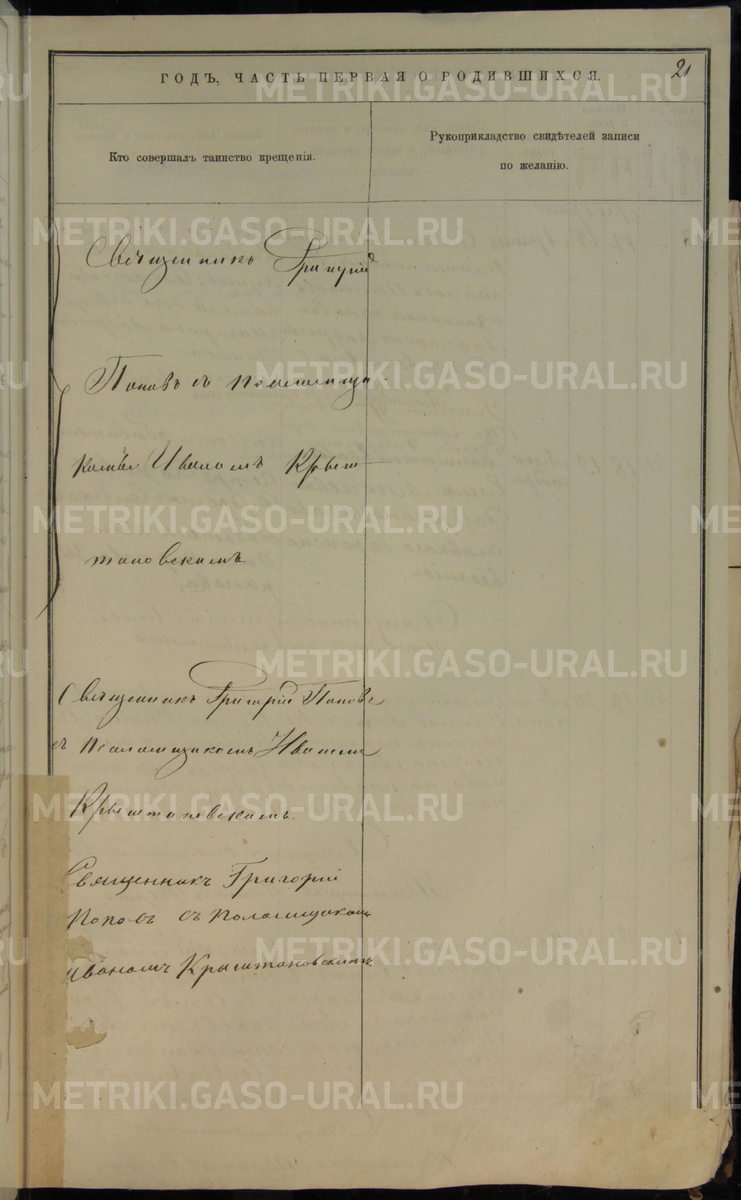 ГОДЪ, ЧАСТЬ ПЕРВАЯ О РОДИВШИХСЯ.
21
Кто совершалъ таинство крещенія.
Рукоприкладство свидѣтелей записи
по желанію.
Священникъ Григорій
Поповъ съ псаломщи-
комъ Иваномъ Крыш-
тановскимъ
Священникъ Григорій Поповъ
съ псаломщикомъ Иваномъ
Крыштановскимъ.
Священникъ Григорій
Поповъ съ псаломщикомъ
Иваномъ Крыштановскимъ.
METRIKI.GASO-URAL.RU